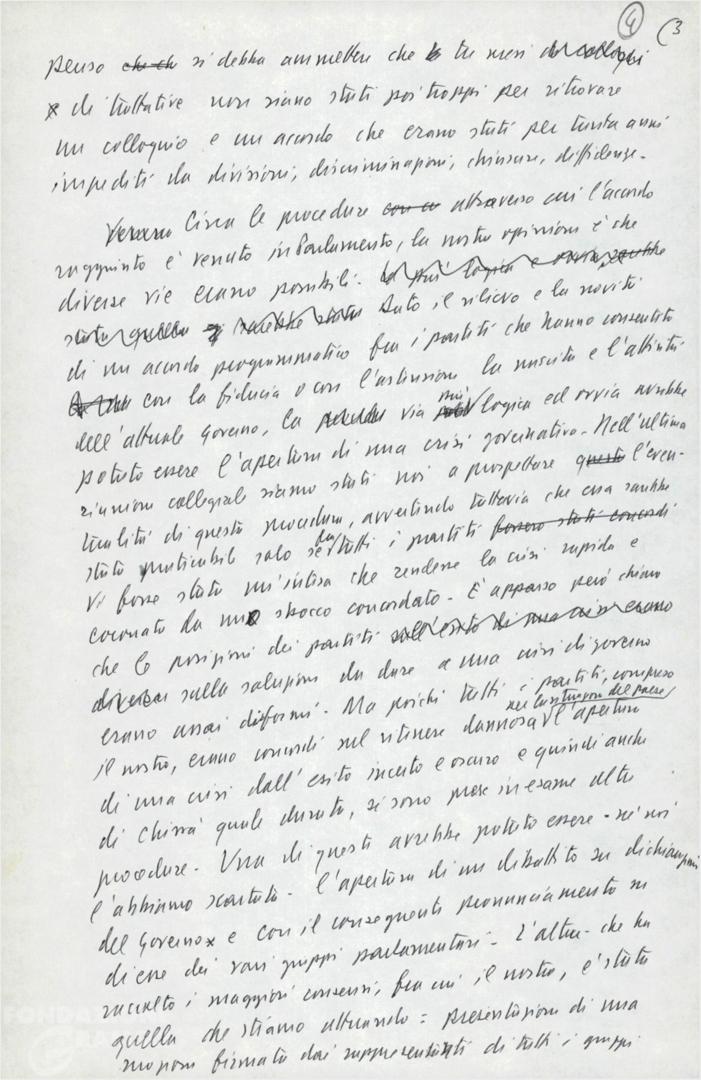 4 (3
penso che ch si debba ammettere che tre mesi di colloqui
e di trattative non siano stati poi troppi per ritrovare
un colloquio e un accordo che erano stati per trenta anni
impediti da divisioni, discriminazioni, chiusure, diffidenze.
Circa le procedure con cu attraverso cui l'accordo
raggiunto è venuto in Parlamento, la nostra opinione è che
diverse vie erano possibili. La più logica e ovvia, sarebbe
stata quella sarebbe stata Dato il rilievo e la novità
di un accordo programmatico fra i partiti che hanno consentito
con la fiducia o con l'astensione la nascita e l'attività
dell'attuale Governo, la via più logica ed ovvia avrebbe
potuto essere l'apertura di una crisi governativa. Nell'ultima
riunione collegiale siamo stati noi a prospettare questa l'even-
tualità di questa procedura, avvertendo tuttavia che essa sarebbe
stata praticabile solo se fra tutti i partiti fossero stati concordi
vi fosse stata un'intesa che rendesse la crisi rapida e
coronata da uno sbocco concordato. È apparso però chiaro
che le posizioni dei partiti sull'esito di una crisi erano
diverse sulla soluzione da dare a una crisi di governo
erano assai difformi. Ma poiché tutti i partiti, compreso
il nostro, erano concordi nel ritenere dannosa nella situazione del paese l'apertura
di una crisi dall'esito incerto e oscuro e quindi anche
di chissà quale durata, si sono prese in esame altre
procedure. Una di queste avrebbe potuto essere - né noi
l'abbiamo scartata - l'apertura di un dibattito su dichiarazioni
del Governo e con il conseguente pronunciamento su
di esse dei vari gruppi parlamentari. L'altra - che ha
raccolto i maggiori consensi, fra cui il nostro, è stata
quella che stiamo attuando: presentazione di una
mozione firmata dai rappresentanti di tutti i gruppi
FONDAZ
GRA